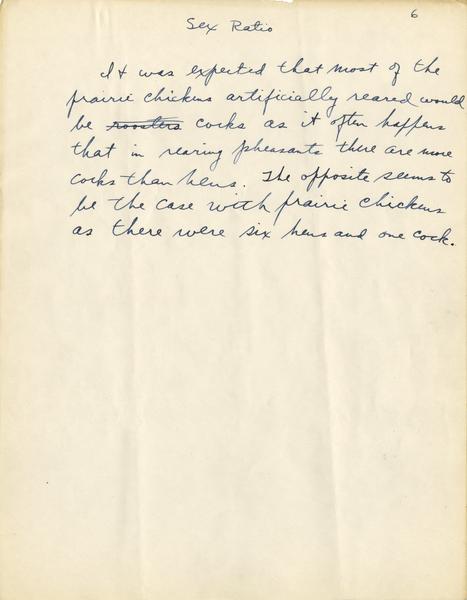 6
Sex Ratio
It was expected that most of the
prairie chickens artificially reared would
be roosters cocks as it often happens
that in rearing pheasants there are more
cocks than hens. The opposite seems to
be the case with prairie chickens
as there were six hens and one cock.